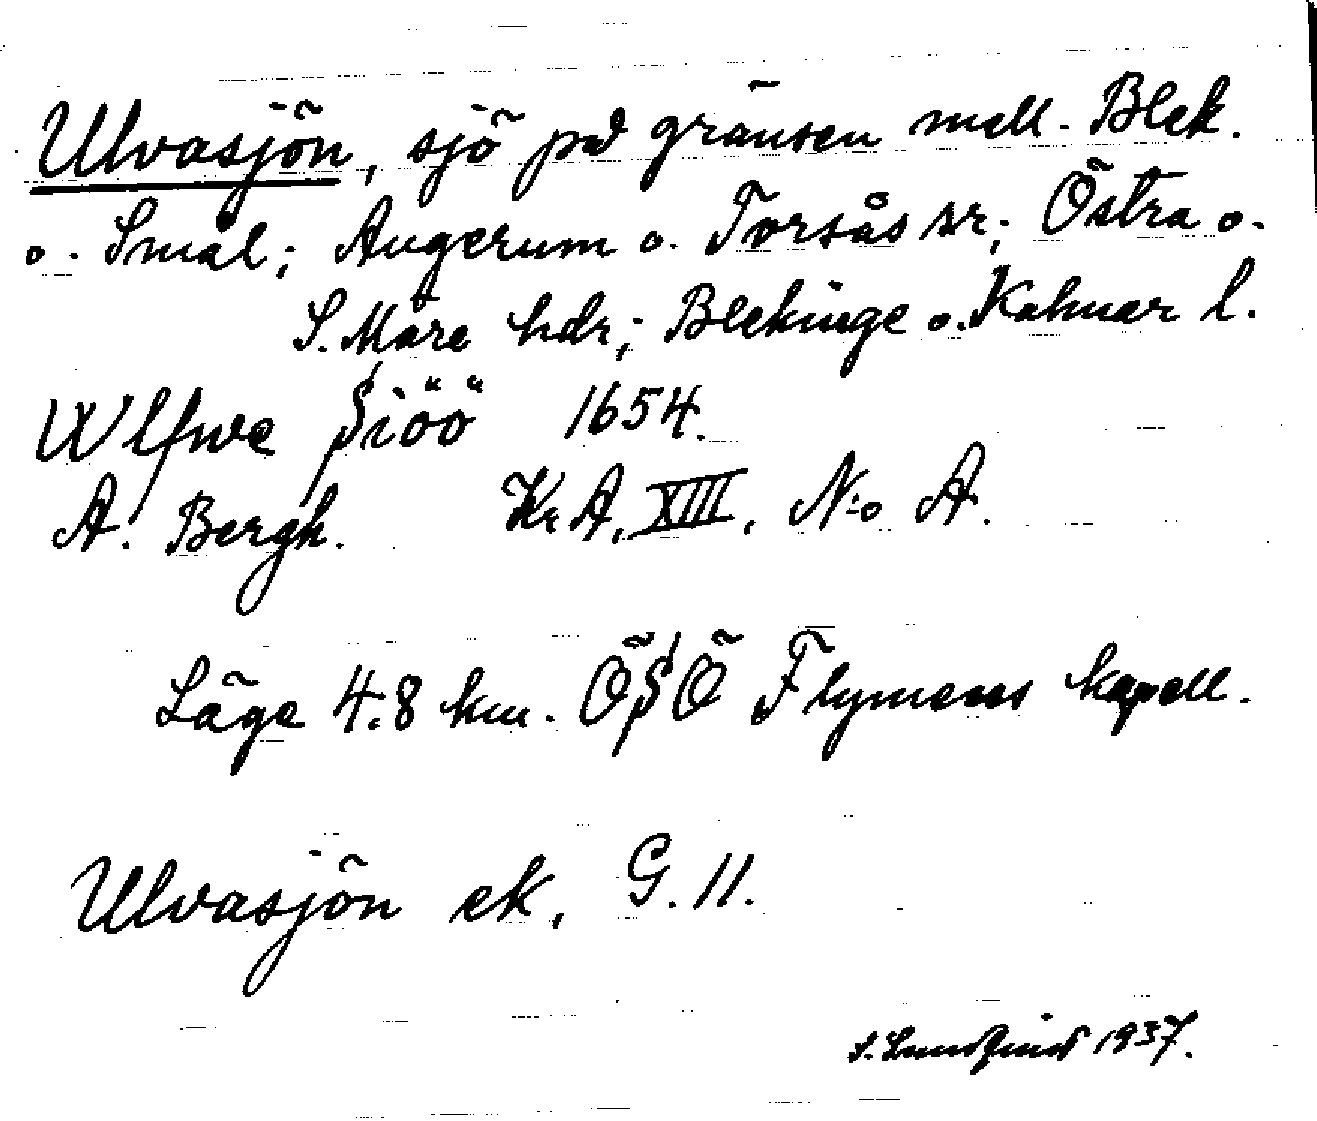 Ulvasjön, sjö på gränsen mell. Blek.
o. Smål; Augerum o. Torsås sr; Östra o.
S. Möre hdr; Blekinge o. Kalmar l.
Wlfwe Siöö 1654.
A. Bergh. Kr A, XIII, N:o A.
Läge 4.8 km. ÖSÖ Flymens kapell.
Ulvasjön ek. G. 11.
S. Lundqvist 1937.